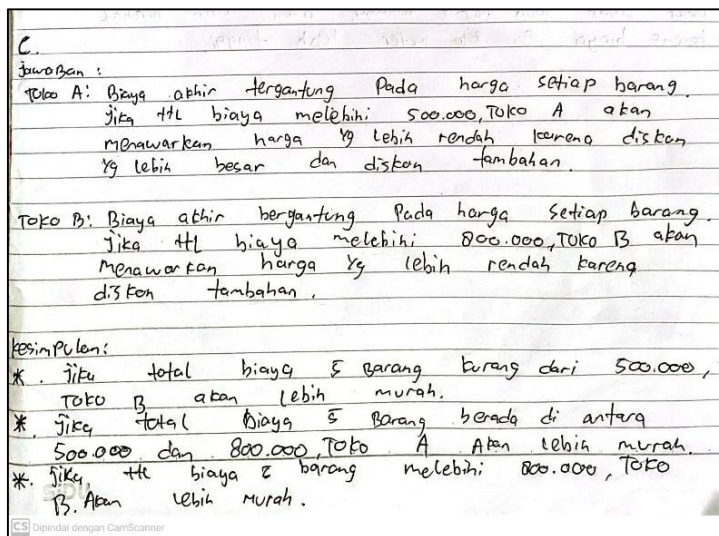 C.
Jawaban :
Toko A: Biaya akhir tergantung Pada harga setiap barang.
Jika ttl biaya melebihi 500.000, Toko A akan
menawarkan harga yg lebih rendah karena diskon
yg lebih besar dan diskon tambahan.
Toko B: Biaya akhir bergantung Pada harga Setiap barang.
Jika ttl biaya melebihi 800.000, Toko B akan
Menawarkan harga yg lebih rendah karena
diskon tambahan.
Kesimpulan:
*. Jika total biaya 5 Barang kurang dari 500.000,
Toko B akan lebih murah.
*. Jika total Biaya 5 Barang berada di antara
500.000 dan 800.000, Toko A Akan lebih murah.
*. Jika ttl biaya barang melebihi 800.000, Toko
B. Akan lebih Murah.
SiDU
CS Dipindai dengan CamScanner